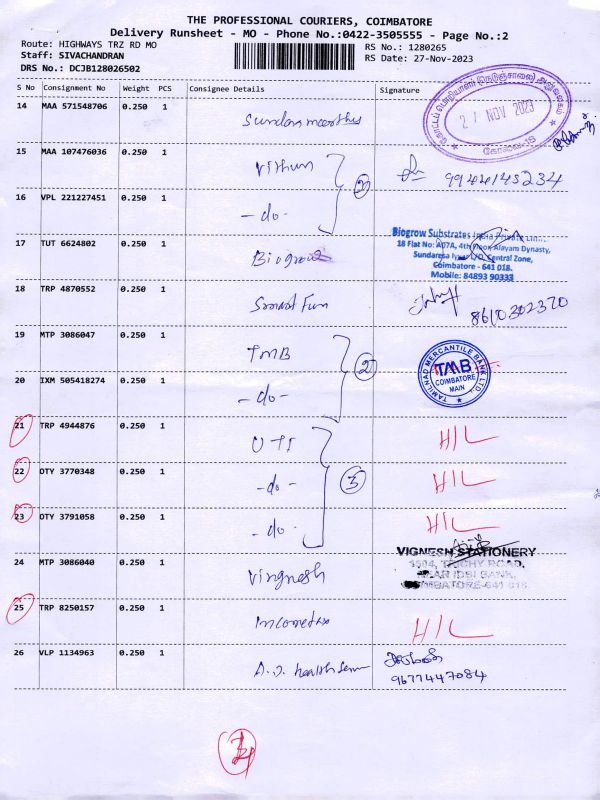 THE PROFESSIONAL COURIERS, COIMBATORE
Delivery Runsheet - MO - Phone No.:0422-3505555 - Page No.:2
Route: HIGHWAYS TRZ RD MO
RS No.: 1280265
Staff: SIVACHANDRAN
RS Date: 27-Nov-2023
DRS No.: DCJB128026502
S No Consignment No Weight PCS Consignee Details Signature
14 MAA 571548706 0.250 1
27 NOV 2023
கோவை-18
15 MAA 107476036 0.250 1 Vithun 9944145234
2
16 VPL 221227451 0.250 1 - do -
17 TUT 6624802 0.250 1 Biogrow
Biogrow Substrates India Private Limi
18 Flat No: A07A, 4th Floor, Alayam Dynasty,
Central Zone,
Coimbatore - 641 018.
Mobile: 84893 90333
18 TRP 4870552 0.250 1 8610302370
19 MTP 3086047 0.250 1 TMB
2
TAMILNAD MERCANTILE BANK LTD.
TMB
COIMBATORE
MAIN
20 IXM 505418274 0.250 1 - do -
21 TRP 4944876 0.250 1 UTI H/L
22 OTY 3770348 0.250 1 - do - H/L
3
23 OTY 3791058 0.250 1 - do - H/L
24 MTP 3086040 0.250 1 Vingnesh
VIGNESH STATIONERY
1504, TRICHY ROAD,
NEAR IDBI BANK,
COIMBATORE-641 018.
25 TRP 8250157 0.250 1 Incometax H/L
26 VLP 1134963 0.250 1
9677447084